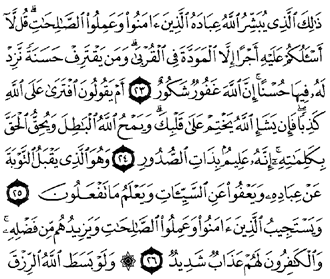 ذَٰلِكَ ٱلَّذِى يُبَشِّرُ ٱللَّهُ عِبَادَهُ ٱلَّذِينَ ءَامَنُوا۟ وَعَمِلُوا۟ ٱلصَّـٰلِحَـٰتِ ۗ قُل لَّآ
أَسْـَٔلُكُمْ عَلَيْهِ أَجْرًا إِلَّا ٱلْمَوَدَّةَ فِى ٱلْقُرْبَىٰ ۗ وَمَن يَقْتَرِفْ حَسَنَةً نَّزِدْ
لَهُۥ فِيهَا حُسْنًا ۚ إِنَّ ٱللَّهَ غَفُورٌ شَكُورٌ ٢٣ أَمْ يَقُولُونَ ٱفْتَرَىٰ عَلَى ٱللَّهِ
كَذِبًا ۖ فَإِن يَشَإِ ٱللَّهُ يَخْتِمْ عَلَىٰ قَلْبِكَ ۗ وَيَمْحُ ٱللَّهُ ٱلْبَـٰطِلَ وَيُحِقُّ ٱلْحَقَّ
بِكَلِمَـٰتِهِۦٓ ۚ إِنَّهُۥ عَلِيمٌۢ بِذَاتِ ٱلصُّدُورِ ٢٤ وَهُوَ ٱلَّذِى يَقْبَلُ ٱلتَّوْبَةَ
عَنْ عِبَادِهِۦ وَيَعْفُوا۟ عَنِ ٱلسَّيِّـَٔاتِ وَيَعْلَمُ مَا تَفْعَلُونَ ٢٥
وَيَسْتَجِيبُ ٱلَّذِينَ ءَامَنُوا۟ وَعَمِلُوا۟ ٱلصَّـٰلِحَـٰتِ وَيَزِيدُهُم مِّن فَضْلِهِۦ ۚ
وَٱلْكَـٰفِرُونَ لَهُمْ عَذَابٌ شَدِيدٌ ٢٦ ۞ وَلَوْ بَسَطَ ٱللَّهُ ٱلرِّزْقَ